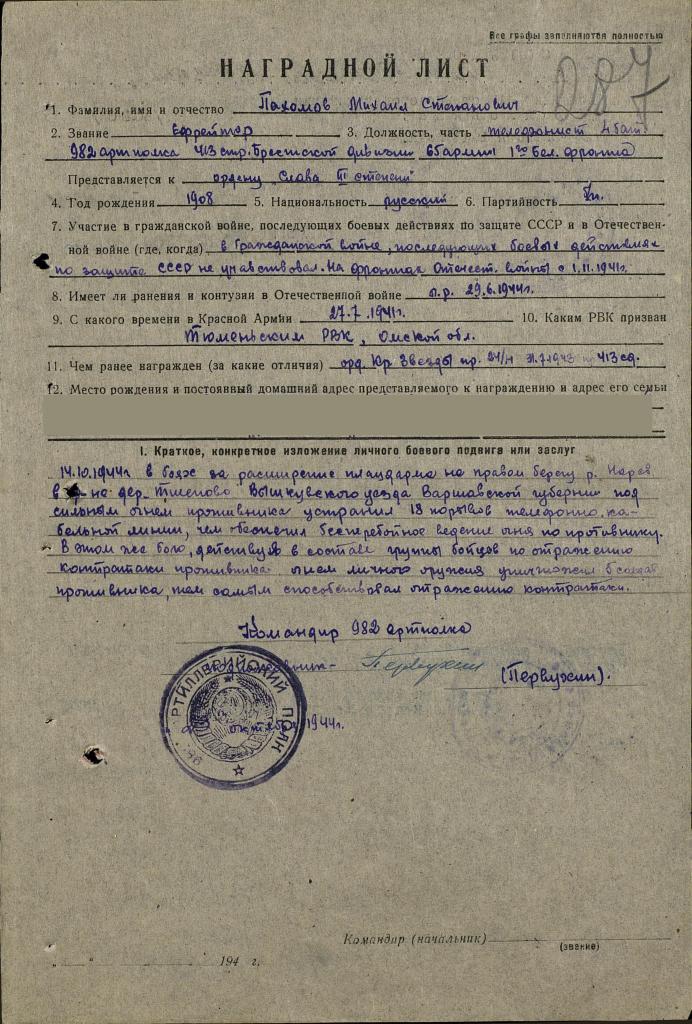 Все графы заполняются полностью
НАГРАДНОЙ ЛИСТ
287
1. Фамилия, имя и отчество Пахомов Михаил Степанович
2. Звание Ефрейтор 3. Должность, часть телефонист 4 бат.
982 артполка 413 стр. Брестской дивизии 65 армии 1го Бел. фронта
Представляется к ордену „Слава III степени"
4. Год рождения 1908 5. Национальность русский 6. Партийность
7. Участие в гражданской войне, последующих боевых действиях по защите СССР и в Отечествен-
ной войне (где, когда) в Гражданской войне, последующих боевых действиях
по защите СССР не участвовал. На фронтах Отечест. войны с 1.11.1941г.
8. Имеет ли ранения и контузии в Отечественной войне л.р. 29.6.1944г.
9. С какого времени в Красной Армии 27.7.1941г. 10. Каким РВК призван
Тюменьским РВК, Омской обл.
11. Чем ранее награжден (за какие отличия) орд. Кр. Звезды пр. 24/н 31.7.1943 413 сд.
12. Место рождения и постоянный домашний адрес представляемого к награждению и адрес его семьи
I. Краткое, конкретное изложение личного боевого подвига или заслуг
14.10.1944г в боях за расширение плацдарма на правом берегу р. Нарев
в р-не дер. Вышкувского уезда Варшавской губернии под
сильным огнем противника устранил 18 порывов телефонно, ка-
бельной линии, чем обеспечил бесперебойное ведение огня по противнику.
В этом же бою, действуя в составе группы бойцов по отражению
контратаки противника огнем личного оружия уничтожил 6 солдат
противника, тем самым способствовал отражению контратаки.
Командир 982 артполка
Первухин (Первухин).
октября 1944г.
АРТИЛЛЕРИЙСКИЙ ПОЛК
Командир (начальник)
(звание)
„ " 194 г.